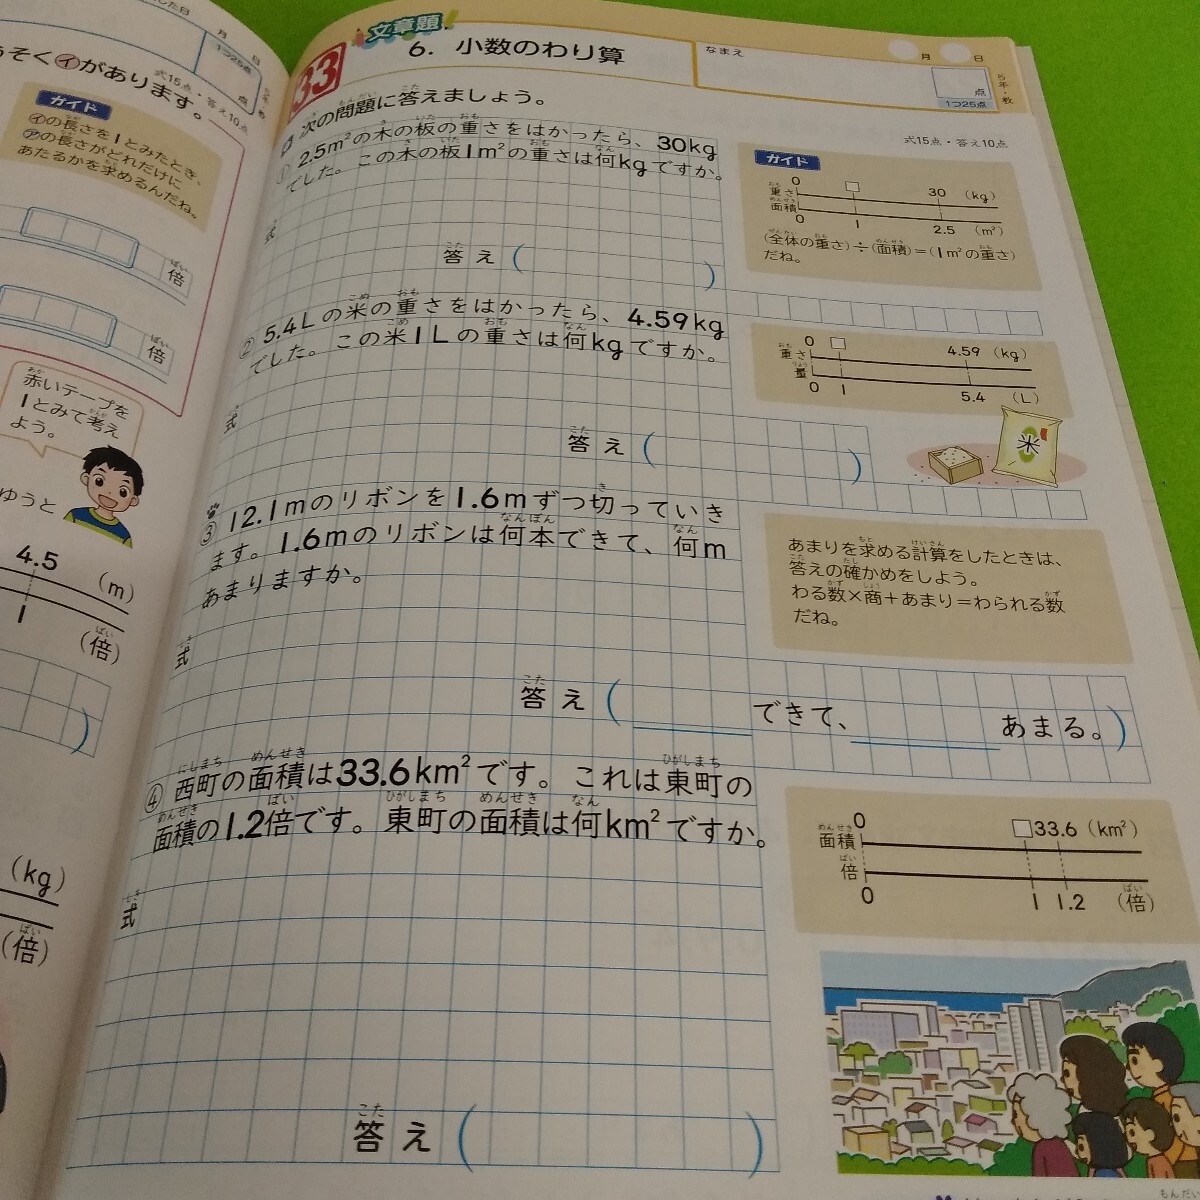 した日
月
日
1つ25点
点
うそく㋑があります。
式15点・答え10点
ガイド
㋑の長さを1とみたとき、
㋐の長さがどれだけに
あたるかを求めるんだね。
倍
倍
赤いテープを
1とみて考え
よう。
ゆうと
4.5
(m)
1
(倍)
)
(kg)
(倍)
33
文章題
6. 小数のわり算
なまえ
月
日
点
1つ25点
5年・数
次の問題に答えましょう。
式15点・答え10点
① 2.5m²の木の板の重さをはかったら、30kg
でした。この木の板1m²の重さは何kgですか。
式
答え ( )
ガイド
0 □ 30 (kg)
重さ
面積
0 1 2.5 (m²)
(全体の重さ)÷(面積)=(1m²の重さ)
だね。
② 5.4Lの米の重さをはかったら、4.59kg
でした。この米1Lの重さは何kgですか。
式
答え ( )
0 □ 4.59 (kg)
重さ
量
0 1 5.4 (L)
米
③ 12.1mのリボンを1.6mずつ切っていき
ます。1.6mのリボンは何本できて、何m
あまりますか。
式
答え ( できて、 あまる。)
あまりを求める計算をしたときは、
答えの確かめをしよう。
わる数×商+あまり=わられる数
だね。
④ 西町の面積は33.6km²です。これは東町の
面積の1.2倍です。東町の面積は何km²ですか。
式
答え ( )
0 □33.6 (km²)
面積
倍
0 1 1.2 (倍)